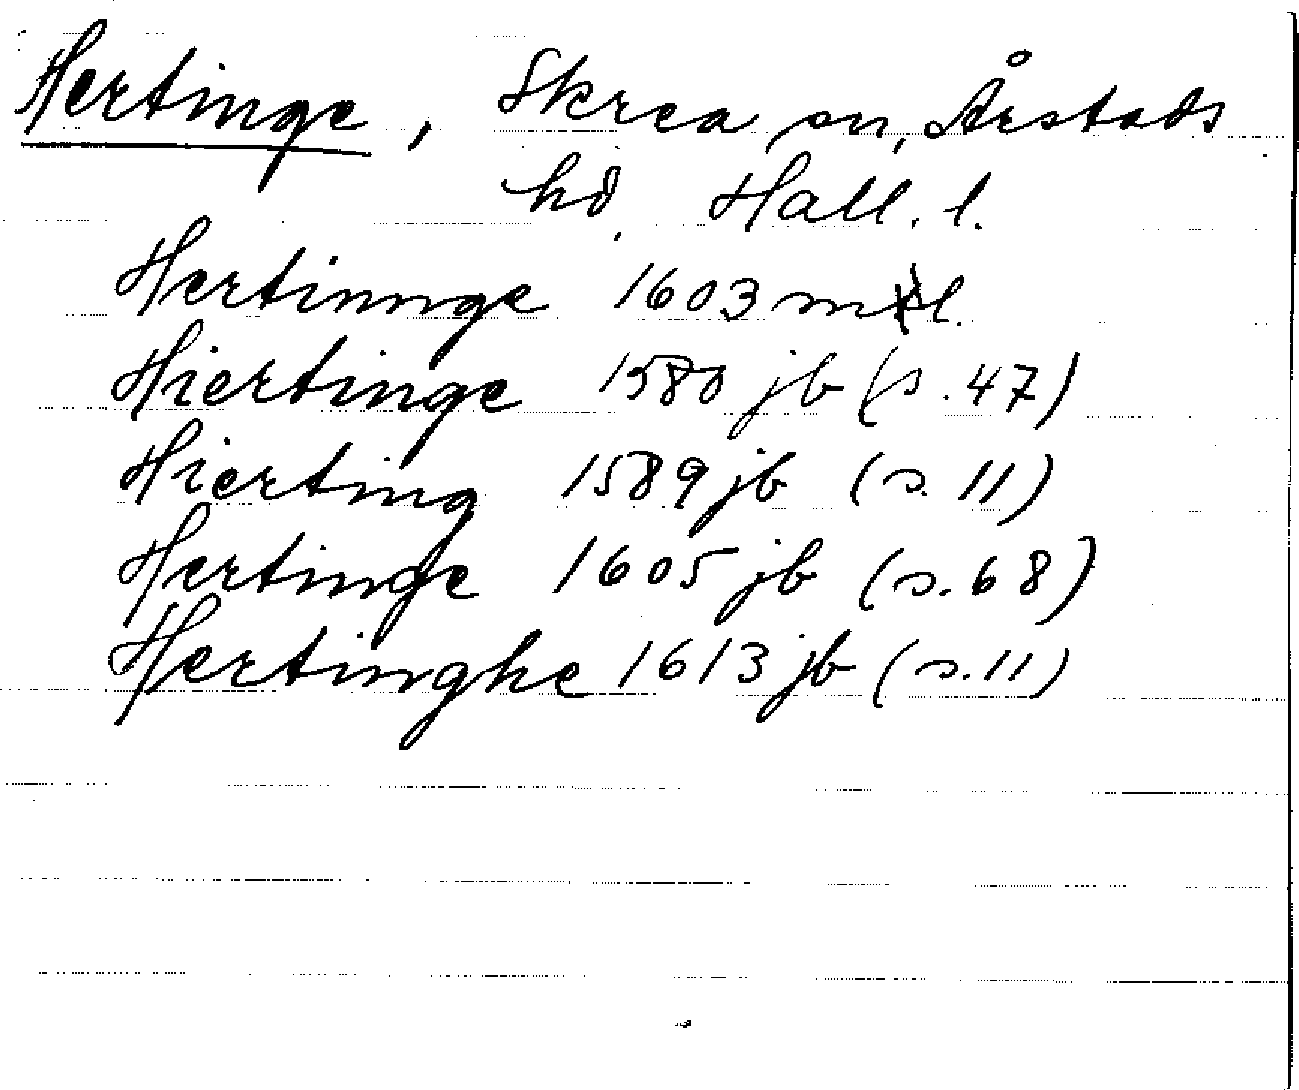 Hertinge, Skrea sn, Årstads
hd, Hall. l.
Hertinnge 1603 mtl.
Hiertinge 1580 jb (s. 47)
Hierting 1589 jb (s. 11)
Hertinge 1605 jb (s. 68)
Hertinghe 1613 jb (s. 11)